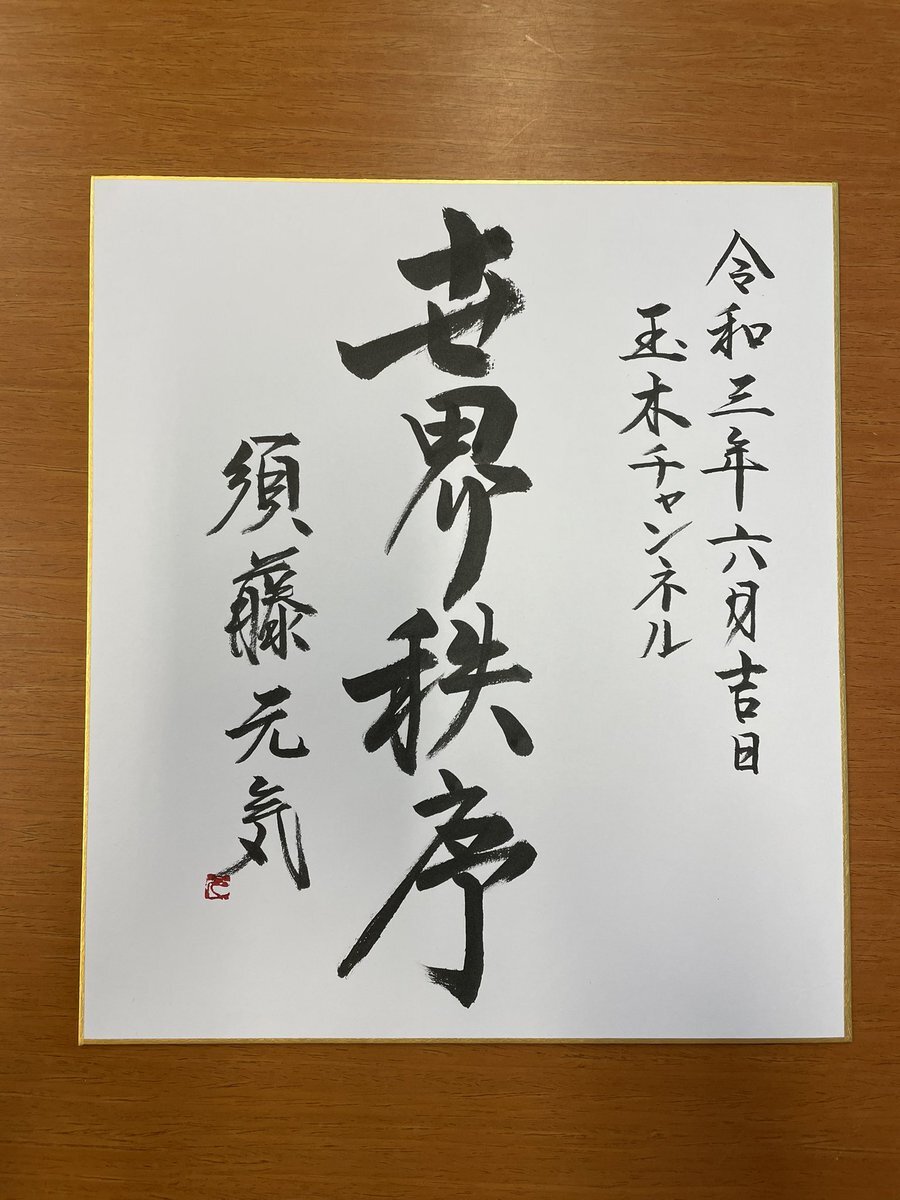 令和三年六月吉日
玉木チャンネル
世界秩序
須藤元気